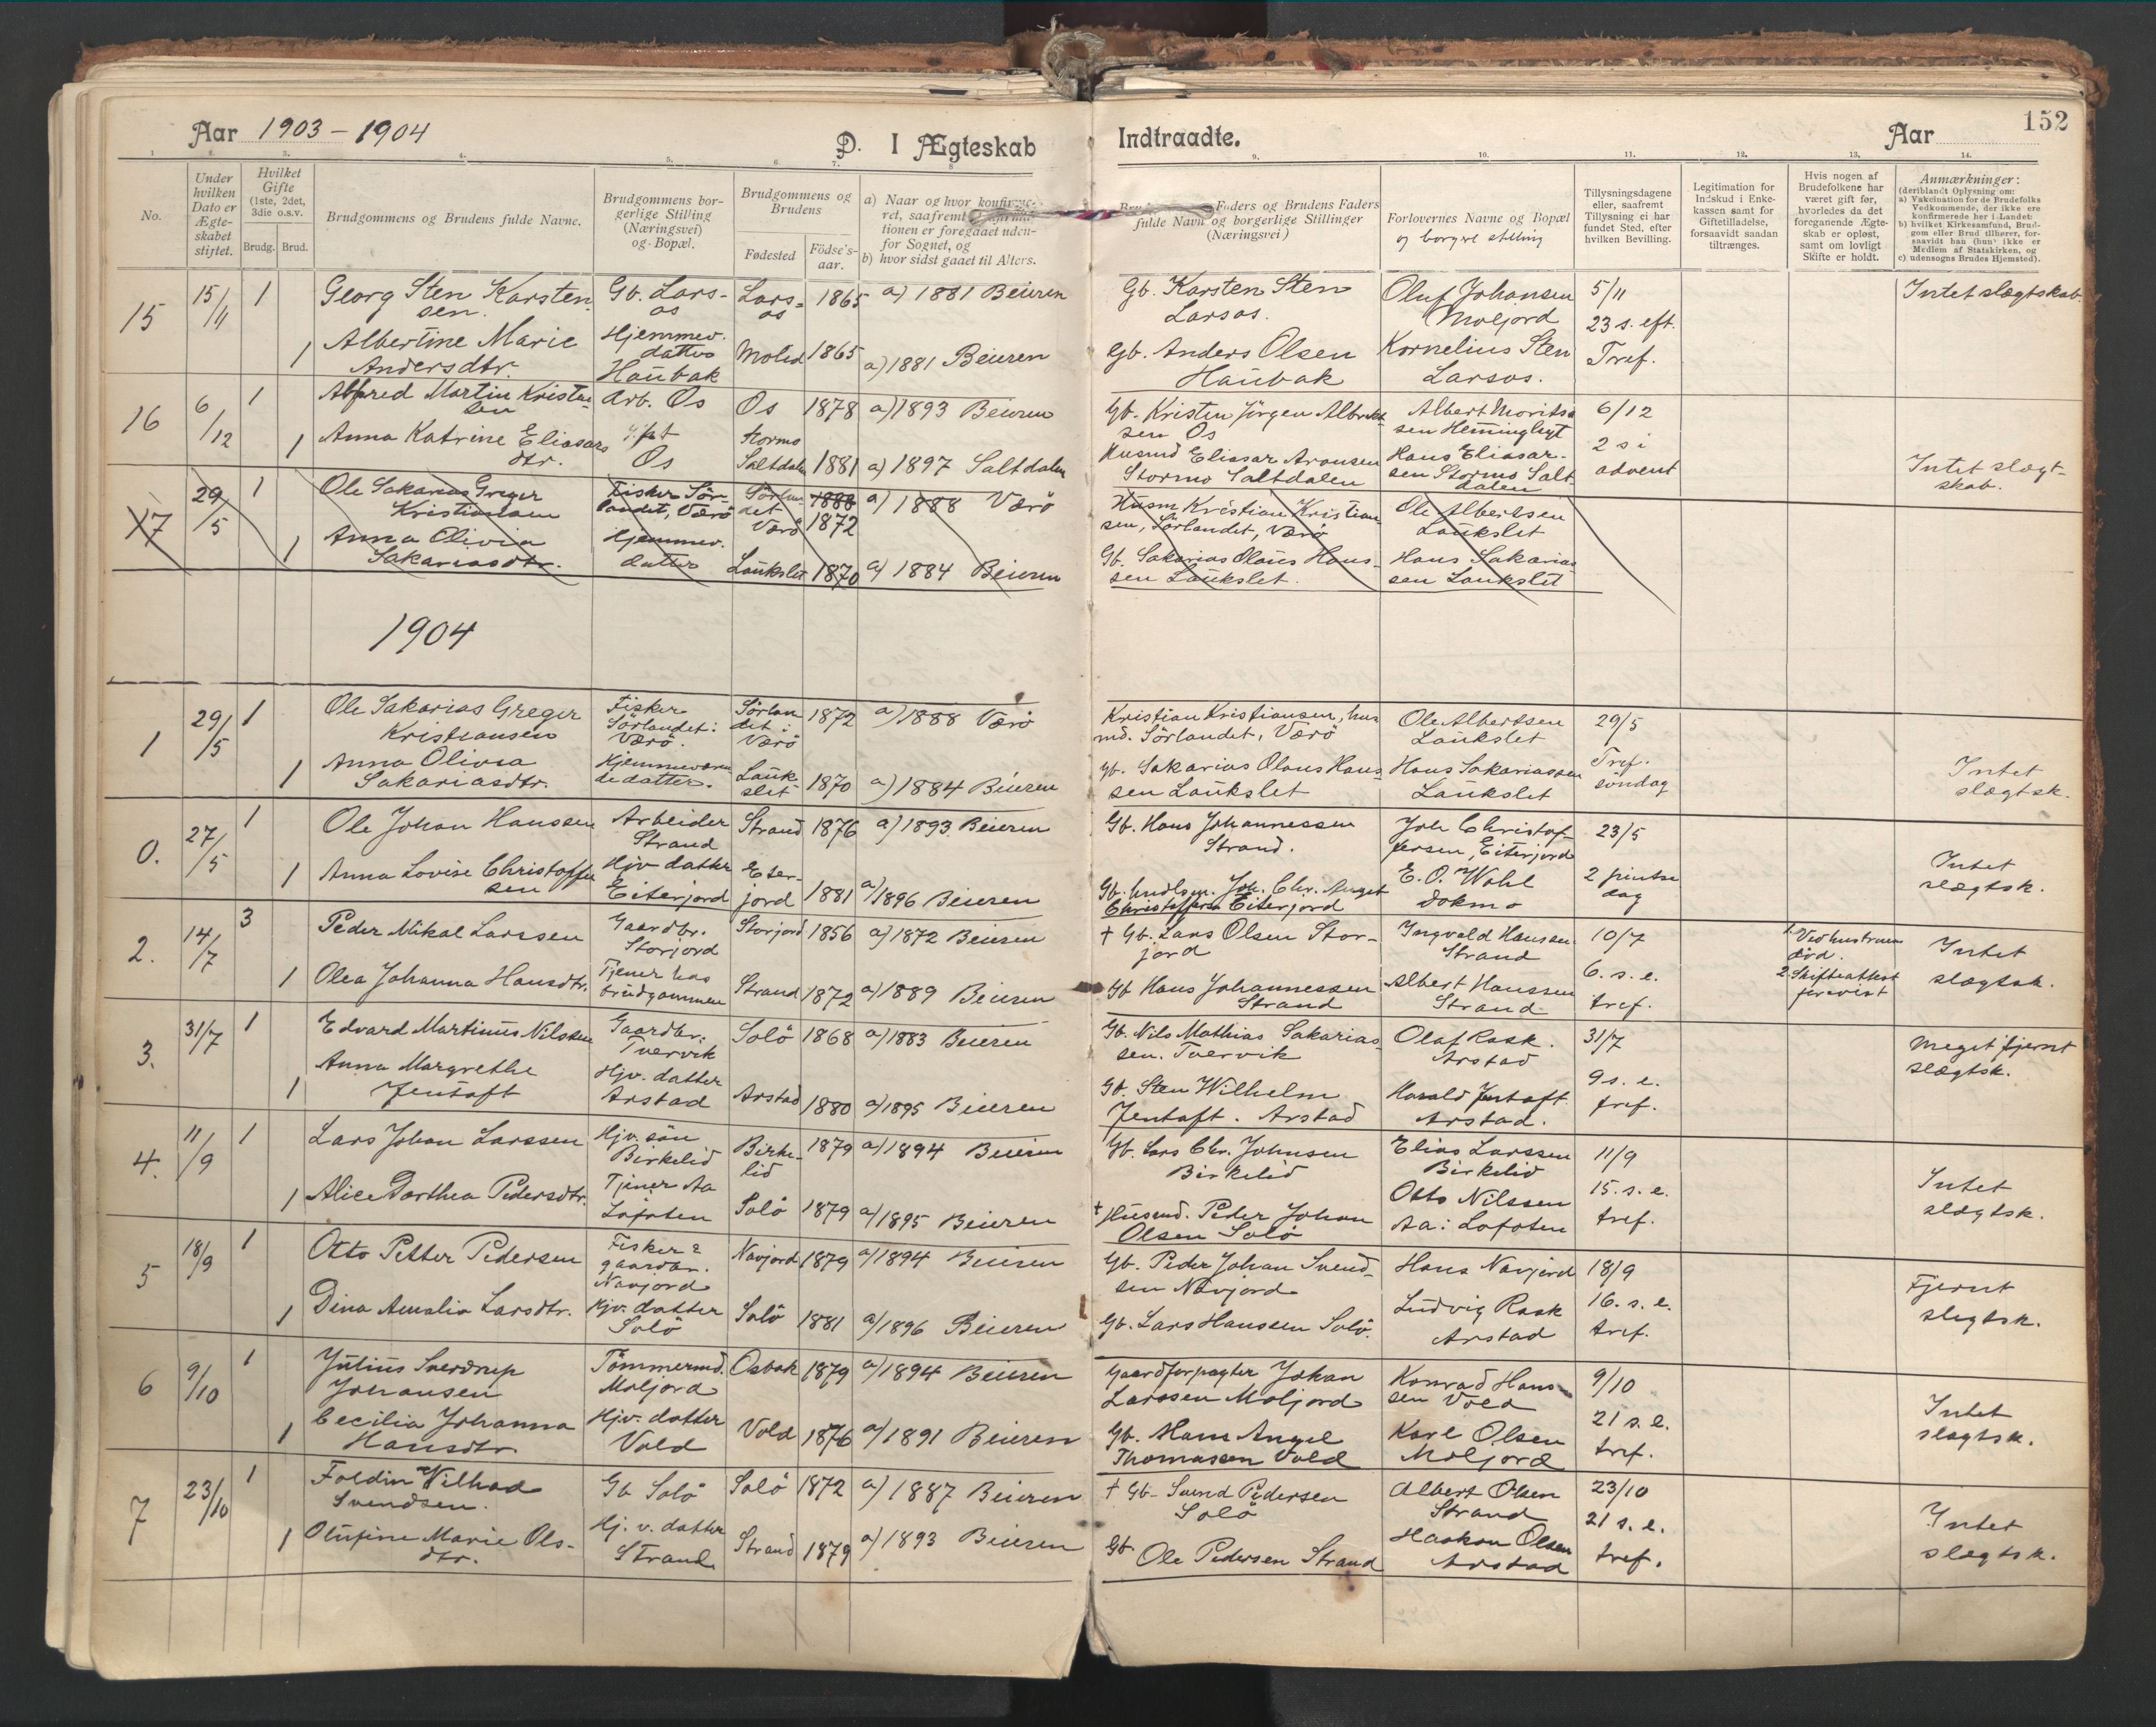 Aar 1903 - 1904
D. I Ægteskab
Indtraadte.
Aar
152
No.
Under hvilken Dato er Ægteskabet stiftet.
Hvilket Gifte (1ste, 2det, 3die o.s.v.
Brudg.
Brud.
Brudgommens og Brudens fulde Navne.
Brudgommens borgerlige Stilling (Næringsvei) og Bopæl.
Brudgommens og Brudens
Fødested
Födse's-aar.
a) Naar og hvor
ret, saafremt
tionen er foregaaet uden-
for Sognet, og
b) hvor sidst gaaet til Alters.
Faders og Brudens Faders
fulde Navn og borgerlige Stillinger
(Næringsvei)
Forlovernes Navne og Bopæl
og borgerl stilling
Tillysningsdagene eller, saafremt Tillysning ei har fundet Sted, efter hvilken Bevilling.
Legitimation for Indskud i Enkekassen samt for Giftetilladelse, forsaavidt saadan tiltrænges.
Hvis nogen af Brudefolkene har været gift før, hvorledes da det foregaaende Ægteskab er opløst, samt om lovligt Skifte er holdt.
Anmærkninger:
(deriblandt Oplysning om:
a) Vakcination for de Brudefolks Vedkommende, der ikke ere konfirmerede her i Landet:
b) hvilket Kirkesamfund, Brudgom eller Brud tilhører, forsaavidt han (hun) ikke er Medlem af Statskirken, og
c) udensogns Brudes Hjemsted).
15 15/11 1 Georg Sten Karstensen. Gb. Larsos Larsos 1865 a) 1881 Beieren Gb. Karsten Sten Larsos. Oluf Johansen Moljord 5/11 23 s. eft. Tref. Intet slægtskab.
1 Albertine Marie Andersdtr. Hjemmev. datter Haubak Molid 1865 a) 1881 Beieren Gb. Anders Olsen Haubak Kornelius Sten Larsos.
16 6/12 1 Alfred Martin Kristensen Arb. Os Os 1878 a) 1893 Beieren Gb. Kristen Jörgen Albrektsen Os Albert Moritssen Hemingligt 6/12 2 s i advent
1 Anna Katrine Eliasarsdtr. Os Stormo Saltdalen 1881 a) 1897 Saltdalen Husmd Eliasar Aronsen Stormo Saltdalen Hans Eliasarsen Stormo Saltdalen Intet slægtskab.
17 29/5 1 Ole Sakarias Greger Kristiansen Fisker Sörlandet, Værö Sörlandet Værö 1888 1872 a) 1888 Værö Husm Kristian Kristiansen, Sörlandet, Værö Ole Albertsen Laukslet
1 Anna Olivia Sakariasdtr. Hjemmev. datter Laukslet 1870 a) 1884 Beieren Gb. Sakarias Olaus Hanssen Laukslet. Hans Sakariassen Laukslet
1904
1 29/5 1 Ole Sakarias Greger Kristiansen Fisker Sörlandet i Værö. Sörlandet i Værö 1872 a) 1888 Værö Kristian Kristiansen, husmd. Sörlandet, Værö Ole Albertsen Laukslet 29/5 Tref. söndag
1 Anna Olivia Sakariasdtr. Hjemmeværende datter. Laukslet 1870 a) 1884 Beieren Gb. Sakarias Olaus Hanssen Laukslet Hans Sakariassen Laukslet Intet slægtsk.
0. 27/5 1 Ole Johan Hanssen Arbeider Strand Strand 1876 a) 1893 Beieren Gb. Hans Johannessen Strand. Joh Christoffersen, Eiterjord 23/5 2 pintsedag
1 Anna Lovise Christoffersen Hjv datter Eiterjord Eterjord 1881 a) 1896 Beieren Gb. Joh. Chr. Christoffersen Eiterjord E. O. Wohl Dokmo Intet slægtsk.
2. 14/7 3 Peder Mikal Larssen Gaardbr. Storjord Storjord 1856 a) 1872 Beieren † Gb. Lars Olsen Storjord Ingvald Hanssen Strand 10/7 6. s. e. tref. 1. Ved hustruens död. 2. Skifteattest forevist Intet slægtsk.
1 Olea Johanna Hansdtr. Tjener hos brudgommen Strand 1872 a) 1889 Beieren Gb Hans Johannessen Strand Albert Hanssen Strand
3. 31/7 1 Edvard Martinus Nilssen Gaardbr. Tvervik Solö 1868 a) 1883 Beieren Gb. Nils Mathias Sakariassen. Tvervik Olaf Rask. Arstad 31/7 9 s. e. tref. Meget fjernt slægtsk.
1 Anna Margrethe Jentoft Hjv. datter Arstad Arstad 1880 a) 1895 Beieren Gb. Sten Wilhelm Jentoft. Arstad Harald Jentoft Arstad.
4. 11/9 1 Lars Johan Larssen Hjv. sön Birkelid Birkelid 1879 a) 1894 Beieren Gb. Lars Chr. Johnsen Birkelid Elias Larssen Birkelid 11/9 15. s. e. tref.
1 Alice Dorthea Pedersdtr. Tjener Aa Lofoten Solö 1879 a) 1895 Beieren † Husmd. Peder Johan Olsen Solö Otto Nilssen Aa i Lofoten Intet slægtsk.
5 18/9 1 Otto Petter Pedersen Fisker & gaardbr. Navjord Navjord 1879 a) 1894 Beieren Gb. Peder Johan Svendsen Navjord Hans Navjord 18/9 16. s. e. tref. Fjernt slegtsk.
1 Dina Amalia Larsdtr. Hjv. datter Solö Solö 1881 a) 1896 Beieren Gb. Lars Hanssen Solö. Ludvig Rask Arstad
6 9/10 1 Julius Sverdrup Johansen Tömmermd. Moljord Osbak 1879 a) 1894 Beieren Gaardforpagter Johan Larssen Moljord Konrad Hanssen Vold 9/10 21 s. e. tref. Intet slægtsk.
1 Cecilia Johanna Hansdtr. Hjv. datter Vold Vold 1876 a) 1891 Beieren Gb. Hans Angel Thomassen Vold Karl Olsen Moljord
7 23/10 1 Foldin Wilhad Svendsen. Gb Solö Solö 1872 a) 1887 Beieren † Gb. Svend Pedersen Solö Albert Olsen Strand 23/10 21 s. e. tref. Intet slægtsk.
1 Olufine Marie Olsdtr. Hj. v. datter Strand Strand 1879 a) 1893 Beieren Gb. Ole Pedersen Strand Haakon Olsen Arstad